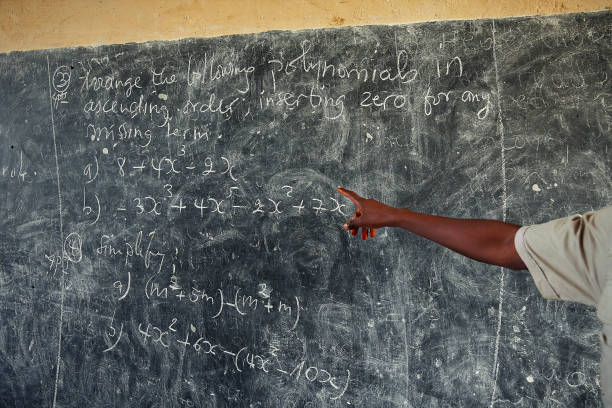 ③ Arrange the following polynomials in
ascending order, inserting zero for any
missing term.
a) 8 + 4x³ - 2x
b) -3x³ + 4x⁵ - 2x² + 7x
④ Simplify
a) (m² + 5m) - (m² + m)
b) 4x² + 6x - (4x² - 10x)